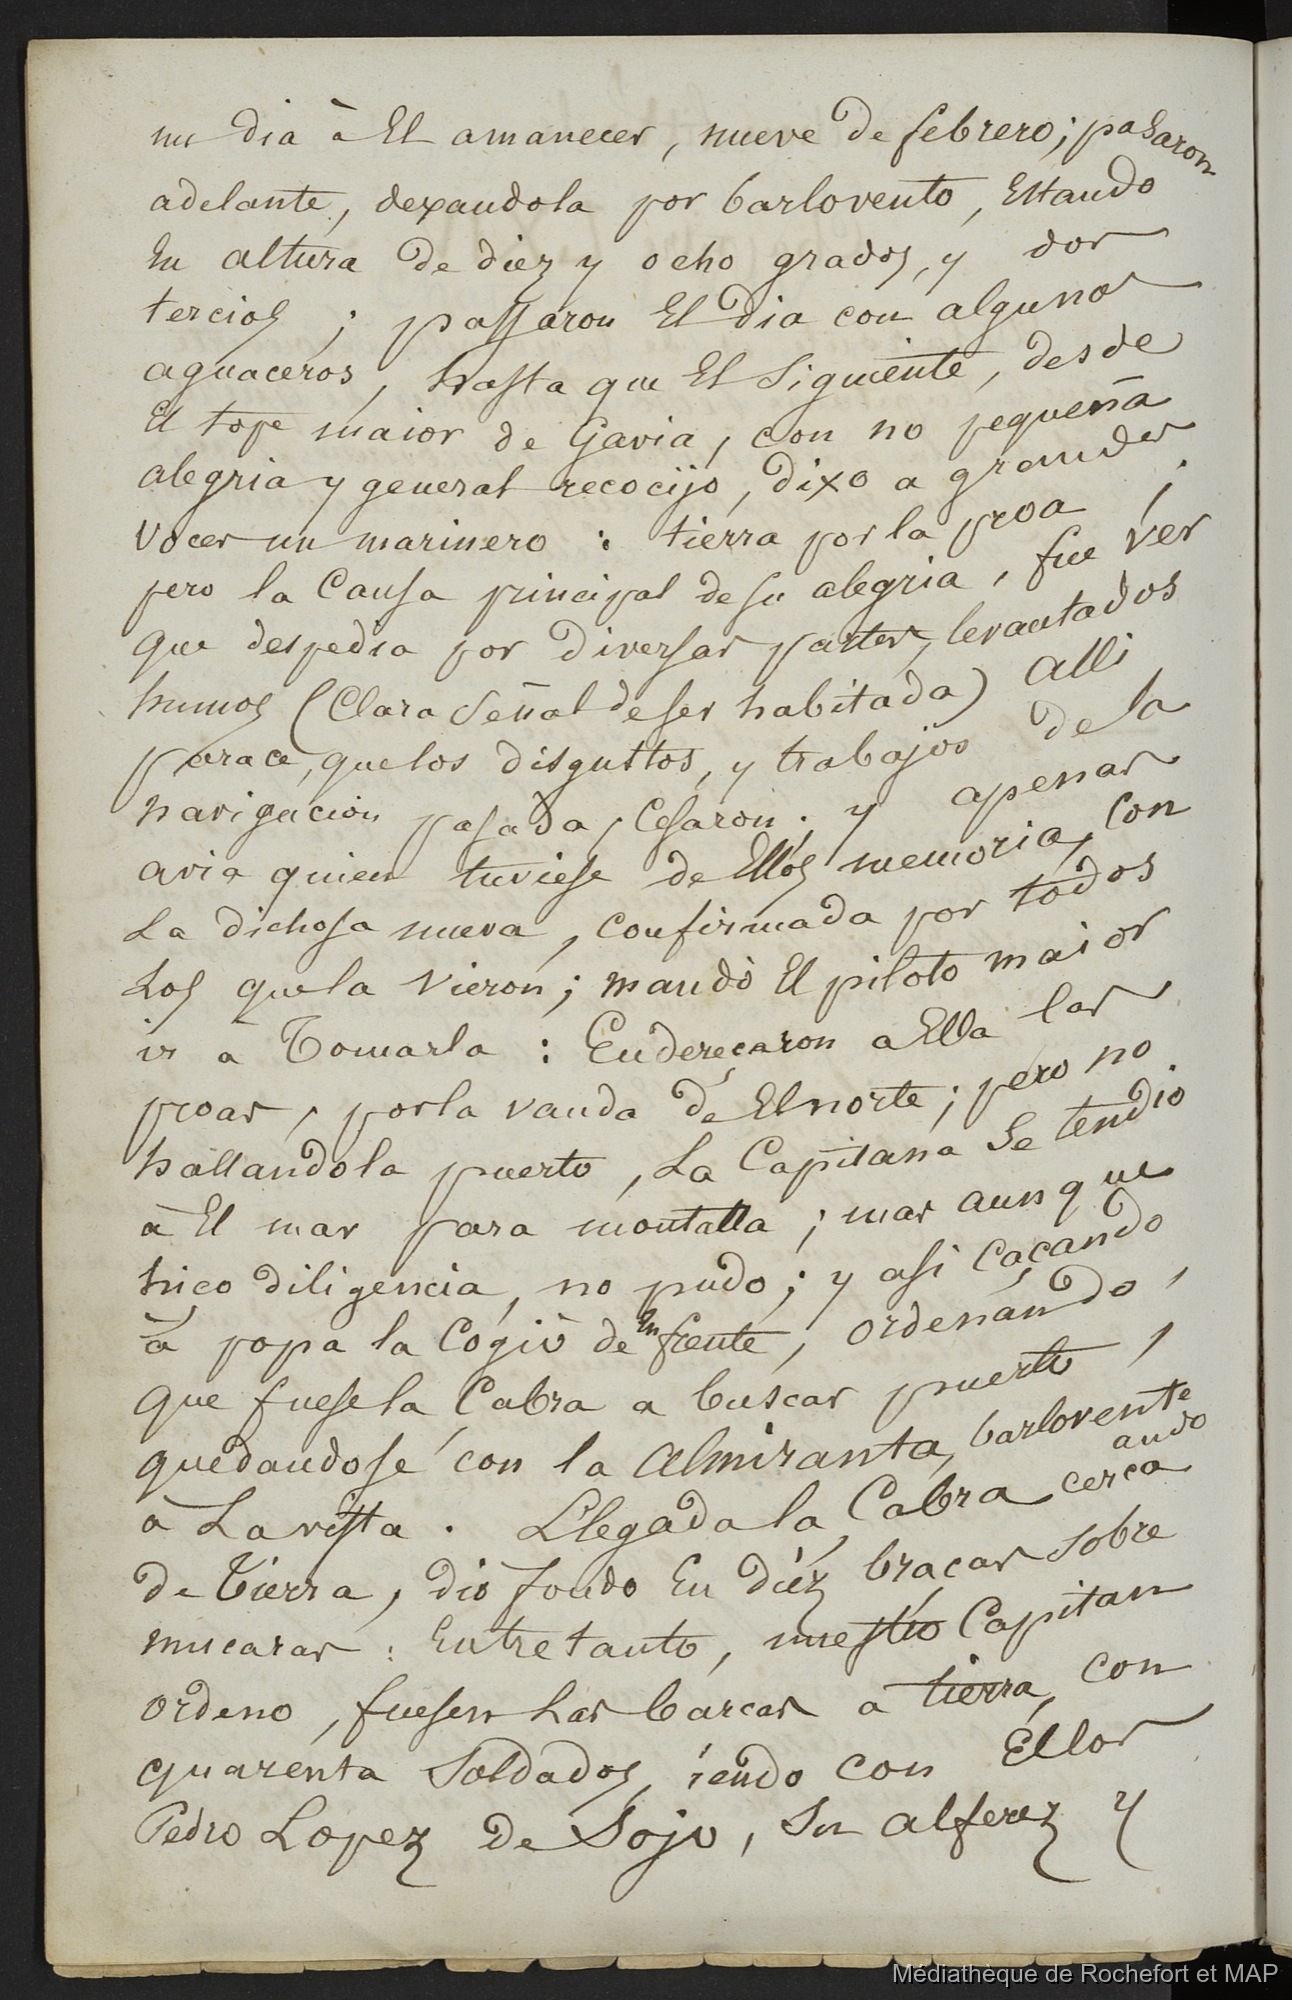 un dia à El amanecer, nueve de febrero; pasaron
adelante, dexandola por barlovento, Estando
En altura de diez y ocho grados, y dos
tercios; passaron El dia con algunos
aguaceros, hasta que El Siguiente, desde
El tope maior de Gavia, con no pequeña
alegria y general recocijo, dixo a grandes
voces un marinero : tierra por la proa ;
pero la Causa principal de su alegria, fue ver
que despedia por diversas partes, levantados
humos (Clara Señal de ser habitada) alli
parace, que los disgustos, y trabajos de la
navigacion pasada, Cesaron ; y apenas
avia quien tuviese de Ellos memoria, Con
La dichosa nueva, confirmada por todos
Los que la vieron; mandò El piloto maior
ir a Tomarla : Endereçaron a Ella las
proas, por la vanda de El norte; pero no
hallandola puerto, La Capitana Se tendio
à El mar para montalla ; mas aunque
hico diligencia, no pudo ; y asi Caçando
à popa la Cogiò de En frente, ordenando,
que fuese la Cabra a buscar puerto,
quedandose con la Almiranta, barlovente
ando
a La vista . Llegada la Cabra cerca
de Tierra, dio fondo En diez braças sobre
mucaras : Entre tanto, nuestro Capitan
ordeno, fuesen Las barcas a tierra, con
quarenta Soldados, iendo con Ellos
Pedro Lopez de Sojo, Su alferez y
Médiathèque de Rochefort et MAP